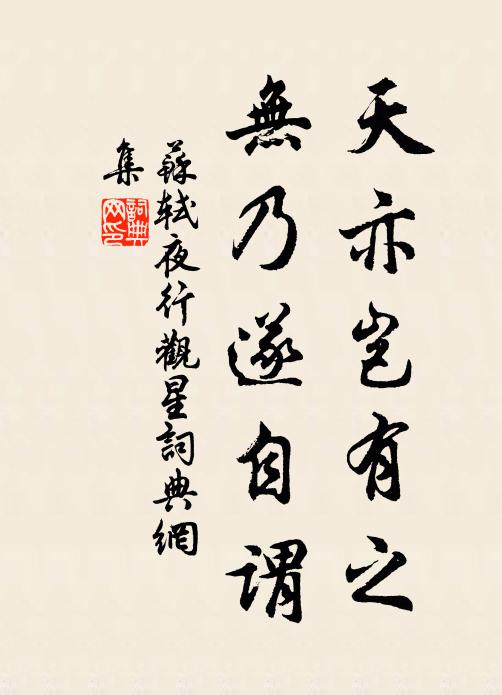 天亦豈有之
無乃遂自謂
蘇軾夜行觀星詞典網
集
詞典
网印